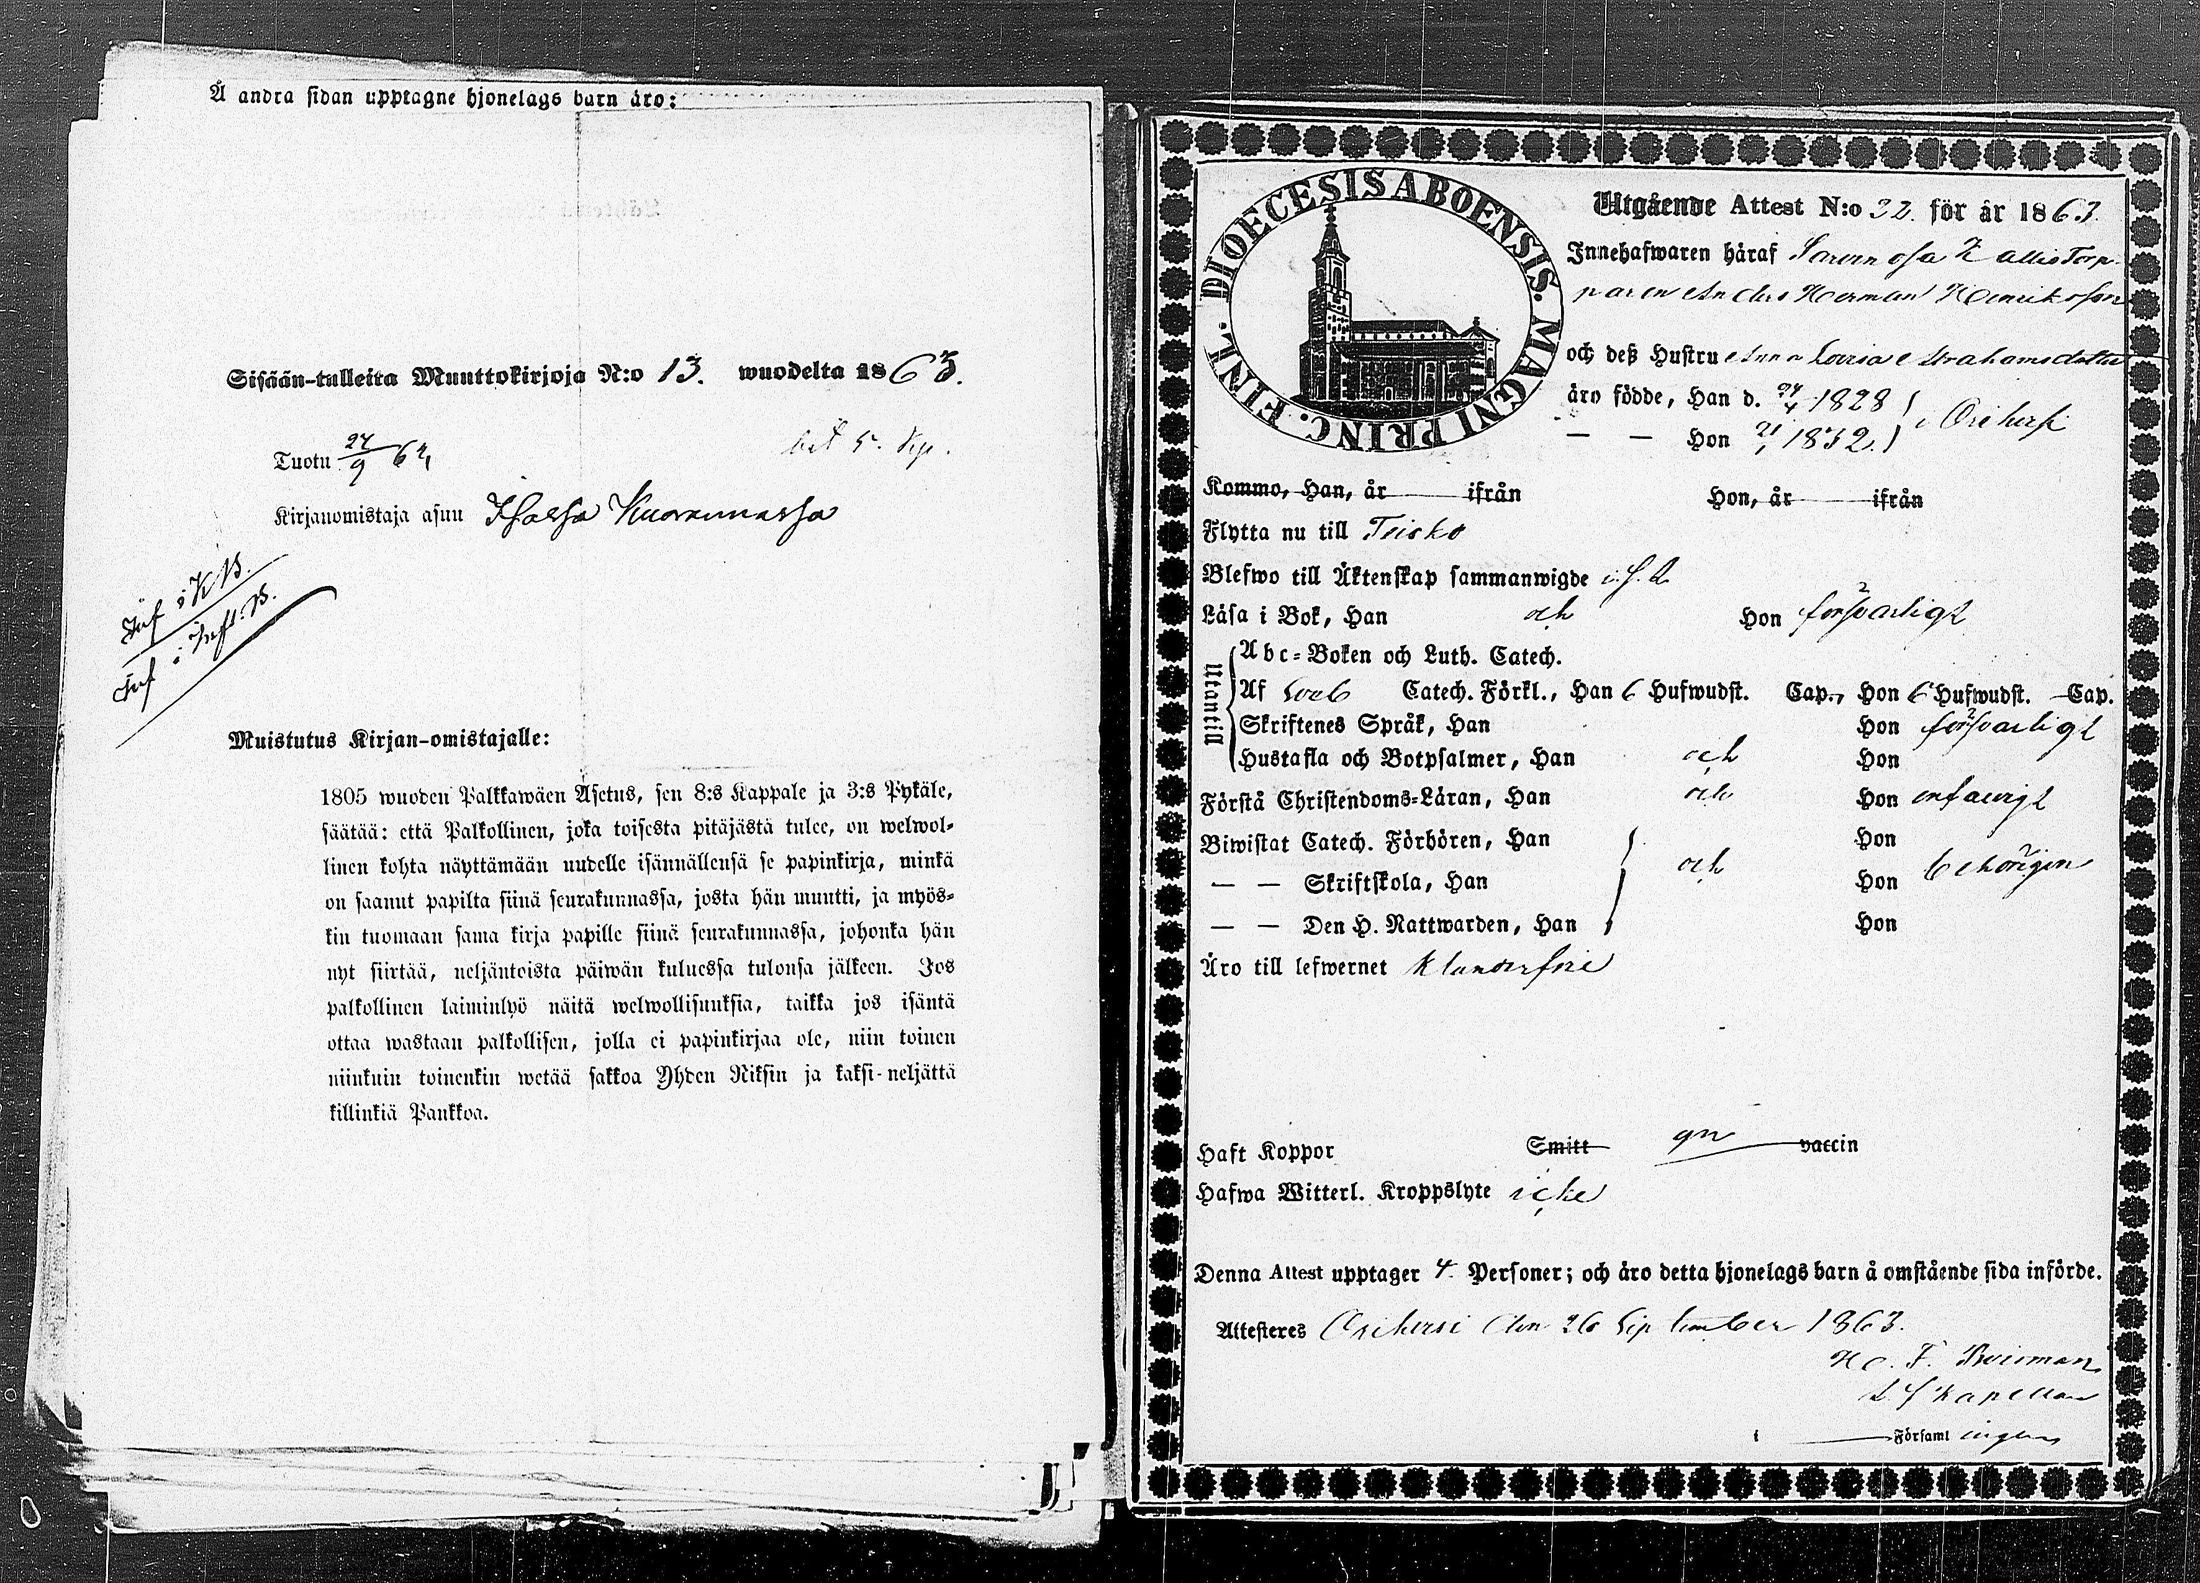 Å andra sidan upptagne hjonelags barn äro:
Sisään-tulleita Muuttokirjoja N:o 13. wuodelta 1863.
Tuotu 27/9 63
Kirjanomistaja asuu
Inf i KB.
Inf i Infl. B.
Muistutus Kirjan-omistajalle:
1805 wuoden Palkkawäen Asetus, sen 8:s Kappale ja 3:s Pykäle,
säätää: että Palkollinen, joka toisesta pitäjästä tulee, on welwol-
linen kohta näyttämään uudelle isännällensä se papinkirja, minkä
on saanut papilta siinä seurakunnassa, josta hän muutti, ja myös-
kin tuomaan sama kirja papille siinä seurakunnassa, johonka hän
nyt siirtää, neljäntoista päiwän kuluessa tulonsa jälkeen. Jos
palkollinen laiminlyö näitä welwollisuuksia, taikka jos isäntä
ottaa wastaan palkollisen, jolla ei papinkirjaa ole, niin toinen
niinkuin toinenkin wetää sakkoa Yhden Riksin ja kaksi-neljättä
killinkiä Pankkoa.
DIOECESIS ABOENSIS. MAGNI PRINC. FINL.
Utgående Attest N:o 32. för år 1863.
Innehafwaren häraf Torp-
paren Anders Herman Henriksson
och deß Hustru Anna Lovisa Abrahamsdotter
äro födde, Han d. 27/4 1828 } i Orihersi
— — Hon 21/1 1832.
Kommo, Han, år ifrån Hon, år ifrån
Flytta nu till Teisko
Blefwo till Äktenskap sammanwigde
Läsa i Bok, Han och Hon försvarligt
Utantill
Abc-Boken och Luth. Catech.
Af Sveb Catech. Förkl., Han 6 Hufwudst. Cap., Hon 6 Hufwudst. Cap.
Skriftenes Språk, Han Hon försvarligt
Hustafla och Botpsalmer, Han och Hon
Förstå Christendoms-Läran, Han och Hon enfaldigt
Biwistat Catech. Förhören, Han Hon
— — Skriftskola, Han och Hon behörigen
— — Den H. Nattwarden, Han Hon
Äro till lefwernet klanderfrie
Haft Koppor Smitt vaccin
Hafwa Witterl. Kroppslyte icke
Denna Attest upptager 4. Personer; och äro detta hjonelags barn å omstående sida införde.
Attesteres Orihersi den 26 September 1863.
F.
kapellan
i Församlingen